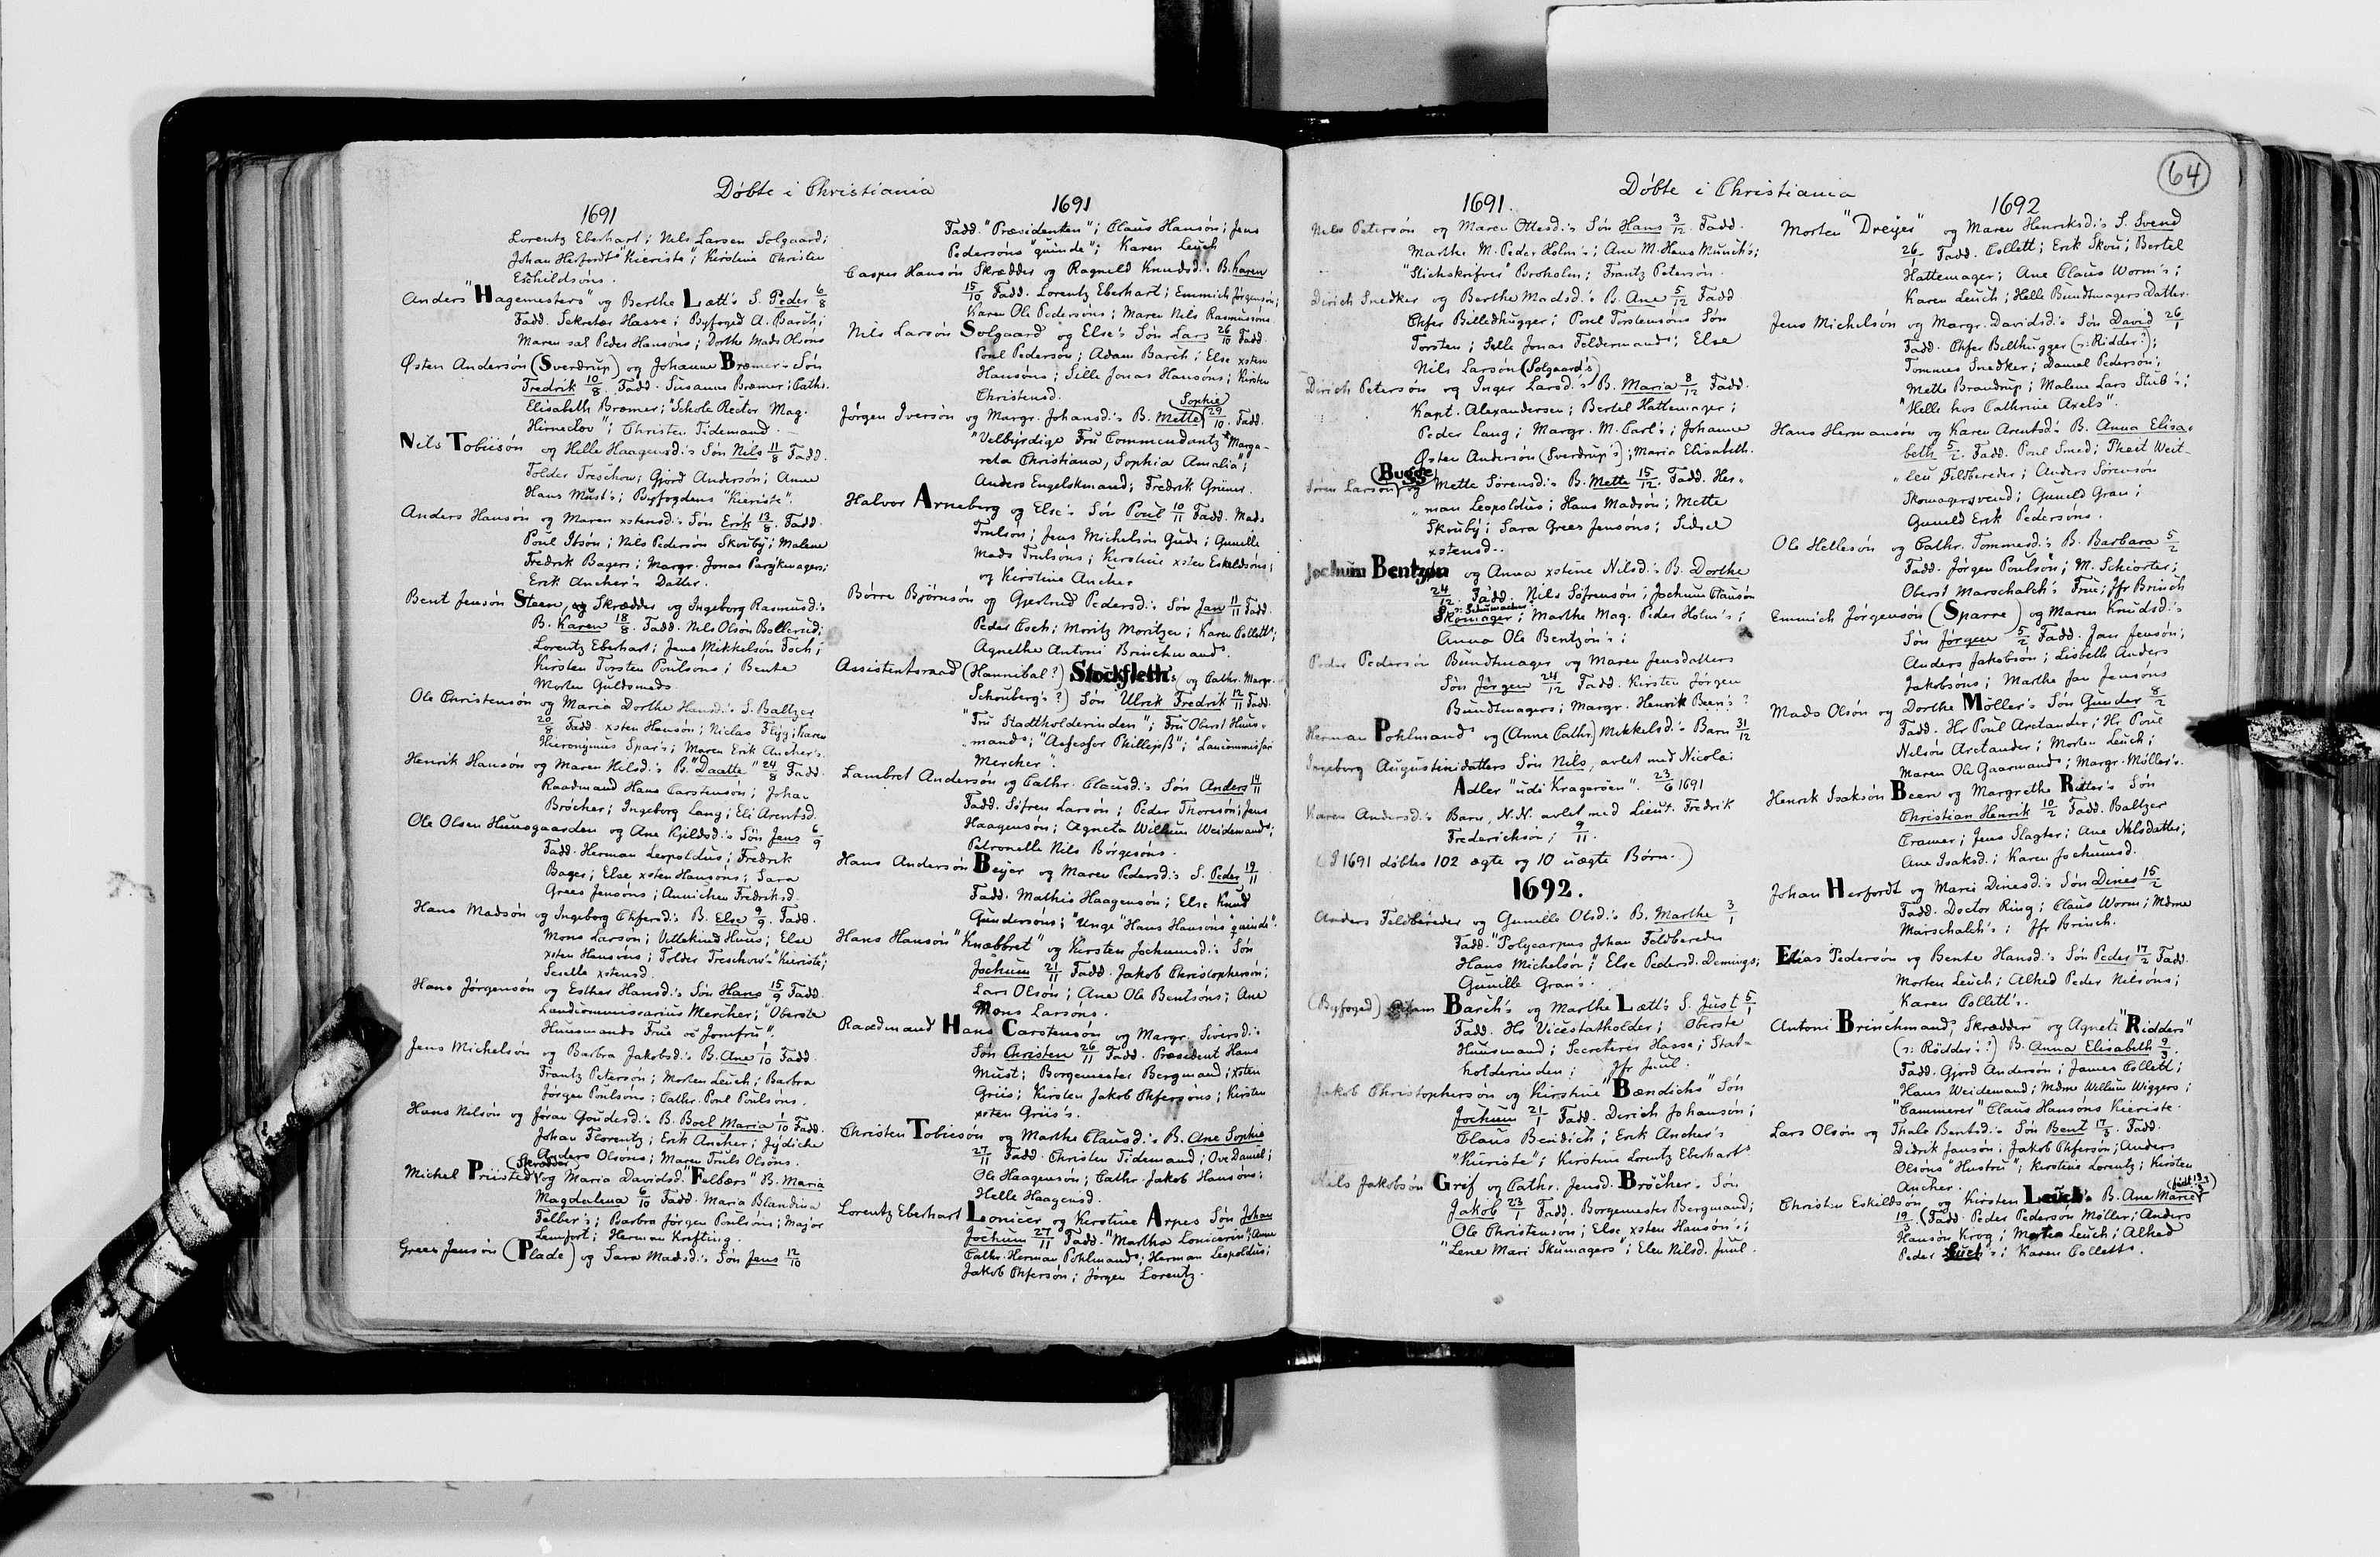 Døbte i Christiania
1691
Lorentz Eberhart; Nils Larsen Solgaard;
Johan Herfordt "Kieriste"; Kirstine Christen
Eschildsøns.
Anders "Hagemesters" og Berthe Lætt's S. Peder 6/8
Fadd. Sekretær Hasse; Byfoged A. Barch;
Maren sal Peder Hansøns; Dorthe Mads Olsøns
Østen Andersøn (Sverdrup) og Johanne Bræmer's Søn
Fredrik 10/8. Fadd. Susanne Bræmer; Cathr.
Elisabeth Bræmer; "Schole Rector Mag.
Hirneclov"; Christen Tidemand.
Nils Tobiisøn og Helle Haagensd.'s Søn Nils 11/8 Fadd.
Tolder Treschow; Gjord Andersøn; Anne
Hans Must's; Byfogdens "Kieriste".
Anders Hansøn og Maren xstensd.'s Søn Erik 13/8. Fadd.
Poul Ibsøn; Nils Pedersøn Skruby; Malene
Fredrik Bagers; Margr. Jonas Parykmagers;
Erik Ancher's Datter.
Bent Jensøn Steen, Skrædder og Ingeborg Rasmusd.'s
B. Karen 18/8. Fadd. Nils Olsøn Bollerud;
Lorentz Eberhart; Jens Mikkelsøn Foch;
Kirsten Torsten Poulsøns; Bente
Morten Guldsmeds
Ole Christensøn og Maria Dorthe Hansd.'s S. Baltzer
20/8 Fadd. xsten Hansøn; Niclas Flyg; Karen
Hieronymus Spar's; Maren Erik Ancher's.
Henrik Hansøn og Maren Nilsd.'s B. "Daatte" 24/8 Fadd.
Raadmand Hans Carstensøn; Johan
Brøcher; Ingeborg Lang; Eli Arentsd.
Ole Olsen Huusgaarden og Ane Kjildsd.'s Søn Jens 6/9
Fadd. Herman Leopoldus; Fredrik
Bager; Else xsten Hansøns; Sara
Grees Jensøns; Annichen Fredriksd.
Hans Madsøn og Ingeborg Chfersd.'s B. Else 9/9. Fadd.
Mons Larson; Vittekind Huus; Else
xsten Hansøns; Tolder Treschow's "Kieriste";
Seselle xstensd.
Hans Jørgensøn og Esther Hansd.'s Søn Hans 15/9 Fadd.
Landcommissarius Mercher; "Oberste
Huusmands Frue oc Jomfru".
Jens Michelsøn og Barbra Jakobsd.'s B. Ane 1/10 Fadd.
Frantz Petersøn; Morten Leuch; Barbra
Jørgen Poulsøns; Cathr. Poul Poulsøns.
Hans Nilsøn og Jøran Goudesd.'s B. Boel Maria 1/10 Fadd.
Johan Florentz; Erik Ancher; Jydiche
Anders Olsøns; Maren Truls Olsøns.
(Skrædder)
Michel Priisted og Maria Davidsd. "Felbærs" B. Maria
Magdalena 6/10 Fadd. Maria Blandina
Felber's; Barbra Jørgen Poulsøns; Major
Lemfort; Herman Krefting.
Grees Jensøn (Plade) og Sara Madsd.'s Søn Jens 12/10
1691
Fadd. "Præsidenten"; Claus Hansøn; Jens
Pedersøns "quinde"; Karen Leuch
Casper Hansøn Skrædder og Ragneld Knudsd.'s B. Karen
15/10 Fadd. Lorentz Eberhart; Emmich Jørgensøn;
Karen Ole Pedersøns; Maren Nils Rasmusøns
Nils Larsøn Solgaard og Else's Søn Lars 26/10 Fadd.
Poul Pedersøn; Adam Barch; Else xsten
Hansøns; Sille Jonas Hansøns; Kirsten
Christensd.
Sophie
Jørgen Iversøn og Margr. Johansd.'s B. Mette 29/10. Fadd.
"Velbyrdige Fru Commendantz "Marga-
reta Christiana, Sophia Amalia";
Anders Engelskmand; Fredrik Grüner.
Halvor Arneberg og Else's Søn Poul 10/11 Fadd. Mads
Trulsøn; Jens Michelsøn Gude; Gunille
Mads Trulsøns; Kirstine xsten Eskeldsøns;
og Kirstine Ancher
Børre Bjørnsøn og Gjertrud Pedersd.'s Søn Jan 11/11 Fadd.
Peder Esch; Moritz Moritzen; Karen Collett;
Agnethe Antoni Brinchmands.
Assistentsraad (Hannibal?) Stockfleth's og Cathr. Margr.
Schouberg's?) Søn Ulrik Fredrik 12/11 Fadd.
"Fru Stadtholderinden"; Fru Oberst Huus-
mands; "Assessor Phillipsß"; "Lancommissær
Mercher".
Lambret Andersøn og Cathr. Clausd.'s Søn Anders 14/11
Fadd. Søfren Larsøn; Peder Thoresøn; Jens
Haagensøn; Agneta Willum Weidemands;
Petronelle Nils Børgesøns.
Hans Andersøn Beyer og Maren Pedersd.'s S. Peder 19/11
Fadd. Mathis Haagensøn; Else Knud
Gundersøns; "Unge" Hans Hansøns "quinde".
Hans Hansøn "Knæbbret" og Kirsten Jochumsd.'s Søn
Jochum 21/11 Fadd. Jakob Christophersøn;
Lars Olsøn; Ane Ole Bentsøns; Ane
Mons Larsøns.
Raadmand Hans Carstensøn og Margr. Siversd.'s
Søn Christen 26/11 Fadd. Præsident Hans
Must; Borgemester Bergmand; xsten
Griis; Kirsten Jakob Chfersøns; Kirsten
xsten Griis's.
Christen Tobiesøn og Marthe Clausd.'s B. Ane Sophie
27/11 Fadd. Christen Tidemand; Ove Daniel;
Ole Haagensøn; Cathr. Jakob Hansøns;
Helle Haagensd.
Lorentz Eberhart Lonicer og Kirstine Arpes Søn Johan
Jochum 27/11 Fadd. "Martha Lonicerin"; Anne
Cathr. Herman Pohlmands; Herman Leopoldus;
Jakob Chfersøn; Jørgen Lorentz.
Døbte i Christiania
64
1691.
Nils Petersøn og Maren Ottesd.'s Søn Hans 3/12. Fadd.
Marthe M. Peder Holm's; Ane M. Hans Munch's;
"Stichskrifver" Broholm; Frantz Petersøn.
Dirich Snedker og Berthe Madsd.'s B. Ane 5/12 Fadd
Chfer Billedhugger; Poul Torstensøns Søn
Torsten; Sille Jonas Feldermands; Else
Nils Larsøn (Solgaard's)
Dirich Petersøn og Inger Larsd.'s B. Maria 8/12 Fadd.
Kapt. Alexandersen; Bertel Hattemager;
Peder Lang; Margr. M. Carl's; Johanne
Østen Andersøn (Sverdrup's); Maria Elisabeth.
(Bugge)
Søren Larsøn og Mette Sørensd.'s B. Mette 15/12. Fadd. Her-
man Leopoldus; Hans Madsøn; Mette
Skruby; Sara Grees Jensøns; Sidsel
xstensd.
Jochum Bentzøn og Anna xstine Nilsd.'s B. Dorthe
24/12. Fadd. Nils Söfrensøn; Jochum Clausøn
ɔ: Schumacher
Skomager; Marthe Mag. Peder Holm's;
Anna Ole Bentzøn's;
Peder Pedersøn Bundtmager og Maren Jensdatters
Søn Jørgen 24/12 Fadd. Kirsten Jørgen
Bundtmagers; Margr. Henrik Been's?
Herman Pohlmands og (Anne Cathr.) Mikkelsd.'s Barn 31/12
Ingeborg Augustinidatters Søn Nils, avlet med Nicolai
Adler "udi Kragerøen". 23/6 1691
Karen Andersd.'s Barn, N.N. avlet med Lieut. Fredrik
Frederichsøn; 9/11.
(I 1691 døbtes 102 ægte og 10 uægte Børn.)
1692.
Anders Feldbereder og Gunille Olsd.'s B. Marthe 3/1
Fadd. "Polycarpus Johan Feldbereder
Hans Michelsøn;" Else Pedersd. Demings;
Gunille Gran's.
(Byfoged) Adam Barch's og Marthe Lætt's S. Just 5/1
Fadd. Hr Vicestatholder; Oberste
Huusmand; Secreterer Hasse; Stat-
holderinden; Jfr Juul.
Jakob Christophersøn og Kirstine "Bændichs" Søn
Jochum 21/1 Fadd. Dirich Johansøn;
Claus Bendich; Erik Ancher's
"Kieriste"; Kirstine Lorentz Eberharts
Nils Jakobsøn Grif og Cathr. Jensd. Brøcher's Søn
Jakob 23/1 Fadd. Borgemester Bergmand;
Ole Christensøn; Else xsten Hansøn's;
"Lene Mari Skumagers"; Elen Nilsd. Juul.
1692
Morten "Dreyer" og Maren Henriksd.'s S. Svend
26/1 Fadd. Collett; Erik Skou; Bertel
Hattemager; Ane Claus Worm's;
Karen Leuch; Helle Bundtmagers Datter.
Jens Michelsøn og Margr. Davidsd.'s Søn David 26/1
Fadd. Chfer Bilthugger (ɔ: Ridder?);
Tommes Snedker; Daniel Pedersøn;
Mette Brandrup; Malene Lars Stub's;
"Helle hos Cathrine Axels".
Hans Hermansøn og Karen Arentsd.'s B. Anna Elisa-
beth 5/2. Fadd. Poul Smed; Theit Weit-
len Feldbereder; Anders Sørensøn
Skomagersvend; Guneld Gran;
Guneld Erik Pedersøns.
Ole Hellesøn og Cathr. Tommesd.'s B. Barbara 5/2
Fadd. Jørgen Poulsøn; M. Schiorter;
Oberst Marschalch's Frue; Jfr Brinch
Emmich Jørgensøn (Sparre) og Maren Knudsd.'s
Søn Jørgen 5/2 Fadd. Jan Jensøn;
Anders Jakobsøn; Lisbeth Anders
Jakobsøns; Marthe Jan Jensøns
Mads Olsøn og Dorthe Möller's Søn Gunder 8/2
Fadd. Hr Poul Arctander; Hr. Poul
Nilsøn Arctander; Morten Leuch;
Maren Ole Gaarmands; Margr. Møller's.
Henrik Isaksøn Been og Margrethe Ritter's Søn
Christian Henrik 10/2 Fadd. Baltzer
Cramer; Jens Slagter; Ane Nilsdatter;
Ane Isaksd.; Karen Jochumsd.
Johan Herfordt og Mari Dinesd.'s Søn Dines 15/2
Fadd. Doctor Ring; Claus Worm; Mdme
Marschalch's; Jfr Brinch.
Elias Pedersøn og Bente Hansd.'s Søn Peder 17/2 Fadd.
Morten Leuch; Alhed Peder Nilsøns;
Karen Collett's.
Antoni Brinchmand, Skrædder og Agneti "Ridders"
(ɔ: Rödder's?) B. Anna Elisabeth 9/3.
Fadd. Gjord Andersøn; James Collett;
Hans Weidemand; Mdme Willum Wiggers;
"Cammerer" Claus Hansøns Kieriste.
Lars Olsøn og Thale Bentsd.'s Søn Bent 17/3. Fadd.
Didrik Jansøn; Jakob Chfersøn; Anders
Olsøns "Hustru"; Kirstine Lorentz; Kirsten
Ancher.
Christen Eskildsøn og Kirsten Leuch's B. Ane Marie
19/3 (Fadd. Peder Pedersøn Møller; Anders
Hansøn Krog; Morten Leuch; Alhed
Peder Leuch's; Karen Colletts.